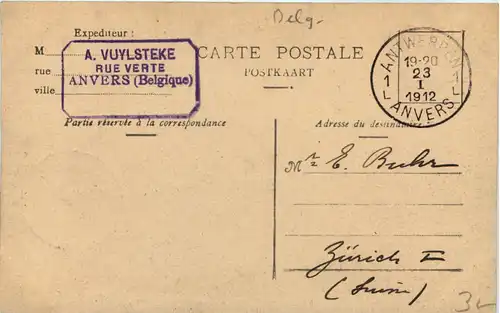 Belg.
Expediteur :
M
rue
ville
A. VUYLSTEKE
RUE VERTE
ANVERS (Belgique)
CARTE POSTALE
POSTKAART
ANTWERPEN
1
19-20
23
I
1912
ANVERS
Partie réservée à la correspondance
Adresse du destinataire :
Mr E. Buhr
Zürich V
(Suisse)